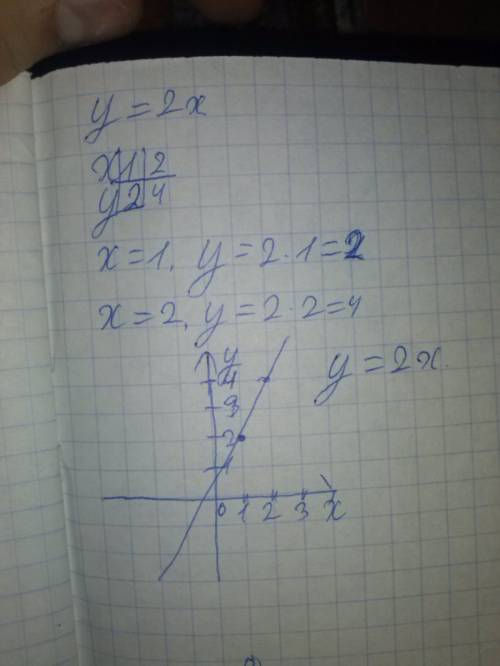 y = 2x
x | 1 | 2
y | 2 | 4
x = 1, y = 2 · 1 = 2
x = 2, y = 2 · 2 = 4
y
4
3
2
1
0 1 2 3 x
y = 2x.